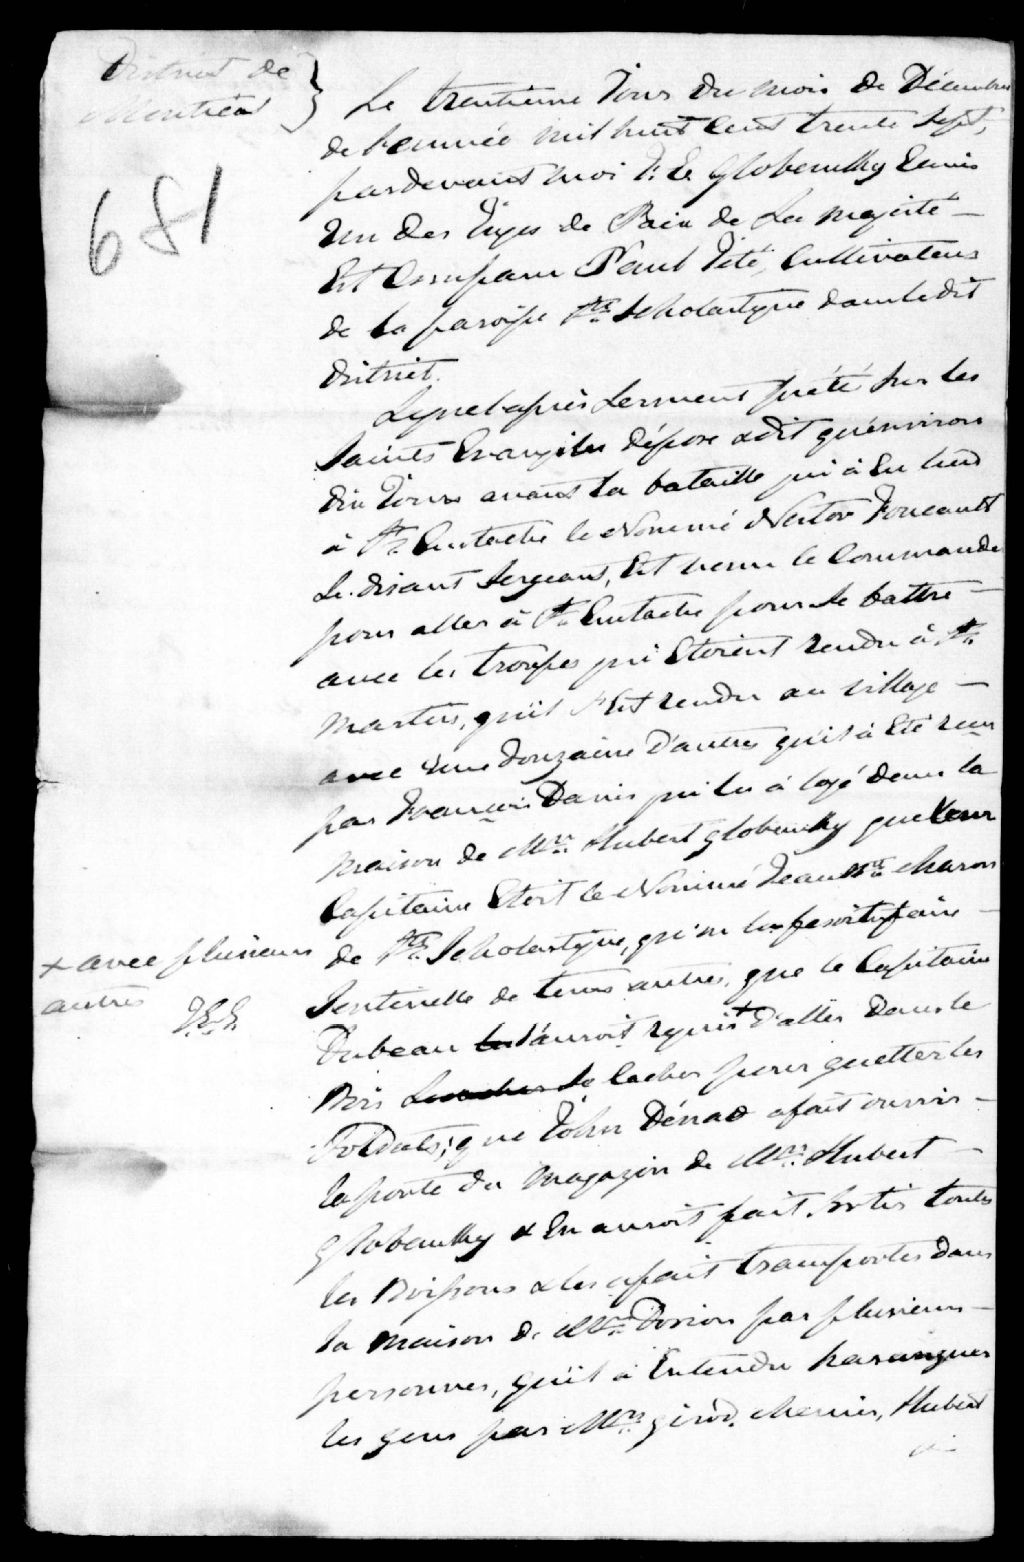 District de
Montréal }
681
Le trentieme Jour du mois de Décembre
de l'année mil huit Cent trente Sept,
pardevant moi F: E. Globensky Ecuier
un des Juges de Paix de Sa Majesté —
Est Comparu Paul Têté, Cultivateur
de la paroisse Ste. Scholastique dans le dit
district.
Lequel après Serment prêté sur les
Saints Evangiles dépose & dit qu'environ
dix Jours avant la bataille qui à Eu lieu
à St. Eustache le Nommé Nestor Foucault
Se disant Sergeant, Est venu le Commander
pour aller à St. Eustache pour se battre —
avec les troupes qui Etoient rendu à St.
Martin, qu'il s'Est rendu au village —
avec une douzaine d'autres qu'il à Eté recu
par Francois Danis qui les à logé dans la
maison de Mr. Hubert Globensky que Leur
Capitaine Etoit le Nommé Jean Bte. Charon
de Ste. Scholastique, qu'on les fesoit faire —
Sentinelle de tems autres, que le Capitaine
Dubeau l'auroit requis + d'aller dans le
+ avec plusieurs
autres
F.E.G.
Bois Se cacher pour guetter les
Soldats; que John Dénao a fait ouvrir —
la porte du magazin de Mr. Hubert —
Globensky & En auroit fait Sortir toutes
les Boissons & les a fait transporter dans
la maison de Mr. Dorion par plusieurs —
personnes, qu'il à Entendu haranguer
les gens par Mrs. Girod, Chenier, Hubert